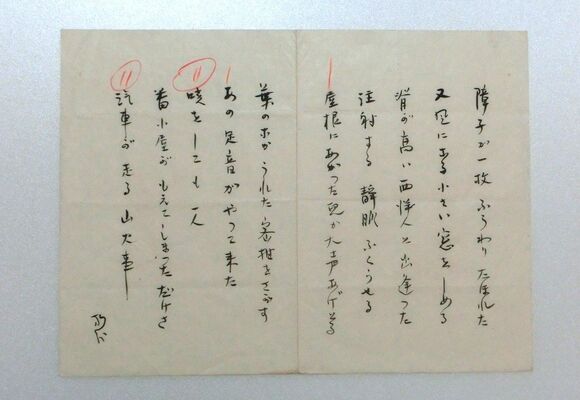 障子が一枚ふうわりたほれた
又にある小さい窓をしめる
背が高い西洋人と出逢つた
注射する静脈ふくらせる
屋根にあがつた児が大声あげゐる
葉のかうれた蜜柑をさがす
あの足音がやつて来た
咳をしても一人
番小屋がもえてしまつただけさ
汽車が走る山火事